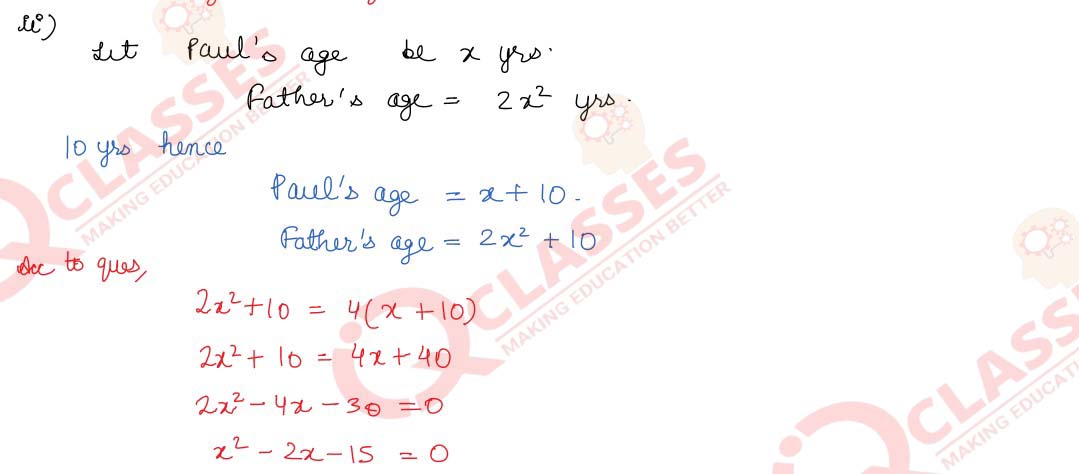 ii)
Let Paul's age be x yrs.
Father's age = 2x² yrs.
10 yrs hence
Paul's age = x + 10.
Father's age = 2x² + 10
Acc to ques,
2x² + 10 = 4(x + 10)
2x² + 10 = 4x + 40
2x² - 4x - 30 = 0
x² - 2x - 15 = 0
CLASSES
MAKING EDUCATION BETTER
CLASSES
MAKING EDUCATION BETTER
CLASS
MAKING EDUCATI